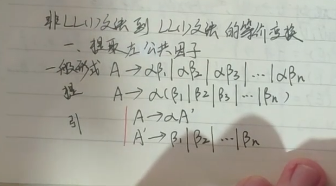 非LL(1)文法到LL(1)文法的等价变换
一、提取左公共因子
一般形式 A→αβ₁|αβ₂|αβ₃|…|αβₙ
提 A→α(β₁|β₂|β₃|…|βₙ)
引 A→αA'
A'→β₁|β₂|…|βₙ